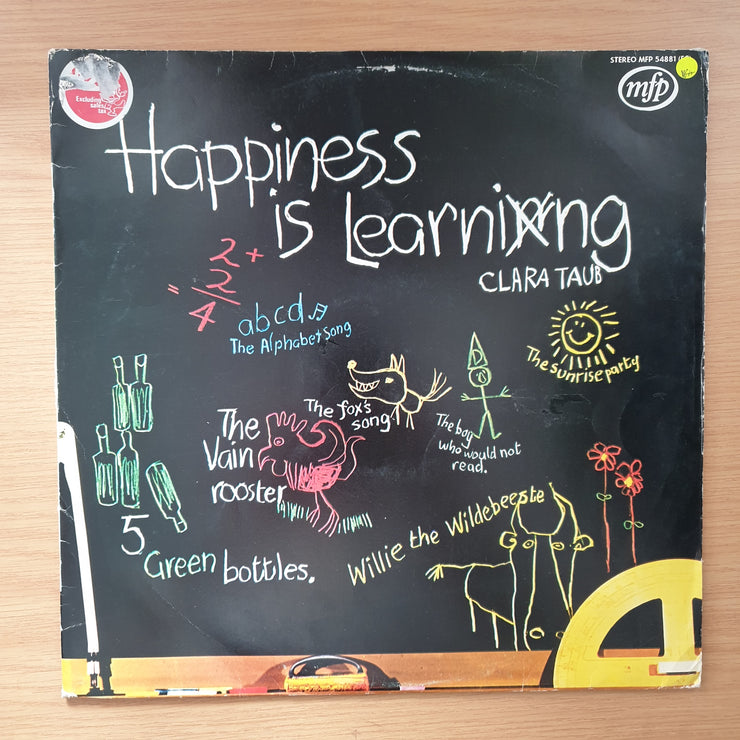 STEREO MFP 54881
mfp
Excluding
sales
tax
Happiness
is Learning
CLARA TAUB
2 +
2
=
4
abcd
The Alphabet Song
The sunrise party
The fox's
song
D
The boy
who would not
read.
The
Vain
rooster
5
Green bottles.
Willie the Wildebeeste